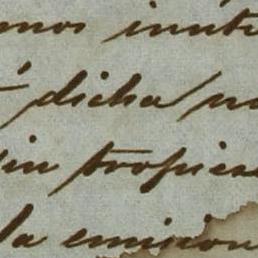 mos inute
á dicha no
sin tropiesa
la emision